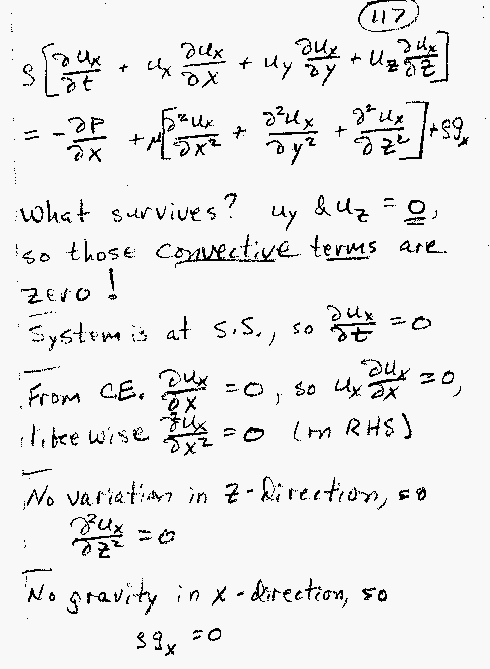 117
ρ[∂ux/∂t + ux ∂ux/∂x + uy ∂ux/∂y + uz ∂ux/∂z]
= -∂P/∂x + μ[∂²ux/∂x² + ∂²ux/∂y² + ∂²ux/∂z²] + ρgx
What survives? uy & uz = 0,
so those convective terms are
zero!
System is at S.S., so ∂ux/∂t = 0
From C.E. ∂ux/∂x = 0, so ux ∂ux/∂x = 0,
likewise ∂²ux/∂x² = 0 (on RHS)
No variation in z-direction, so
∂²ux/∂z² = 0
No gravity in x-direction, so
ρgx = 0